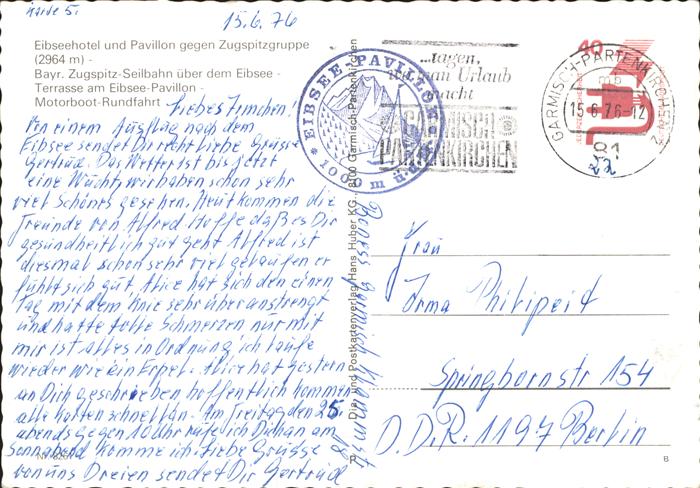 Karte 5.
15.6.76
Eibseehotel und Pavillon gegen Zugspitzgruppe
(2964 m) -
Bayr. Zugspitz-Seilbahn über dem Eibsee -
Terrasse am Eibsee-Pavillon -
Motorboot-Rundfahrt
Liebes Irmchen!
Von einem Ausflug nach dem
Eibsee sendet Dir recht liebe Grüsse
Gertrud. Das Wetter ist bis jetzt
eine Wucht, wir haben schon sehr
viel Schönes gesehen. Heut kommen die
Freunde von Alfred Hoffe daß es Dir
gesundheitlich gut geht Alfred ist
diesmal schon sehr viel gelaufen er
fühlt sich gut, Alice hat sich den einen
Tag mit dem Knie sehr überanstrengt
und hatte tolle Schmerzen nur mit
mir ist alles in Ordnung, ich laufe
wieder wie ein Erpel. Alice hat gestern
an Dich geschrieben hoffentlich kommen
alle Karten schnell an. Am Freitag den 25.
abends gegen 10 Uhr rufe ich Dich an am
sonnabend komme ich. Liebe Grüsse
von uns Dreien sendet Dir Gertrud
EIBSEE-PAVILLON
1000 m ü.d.M.
Dia- und Postkartenverlag Hans Huber KG., 8100 Garmisch-Partenkirchen
...sagen,
man Urlaub
macht
GARMISCH-
PARTENKIRCHEN
GARMISCH-PARTENKIRCHEN 2
mb
15.-6.76-12
81
40
22
Frau
Irma Philipeit
Springbornstr 154
D.D.R. 1197 Berlin
R
B